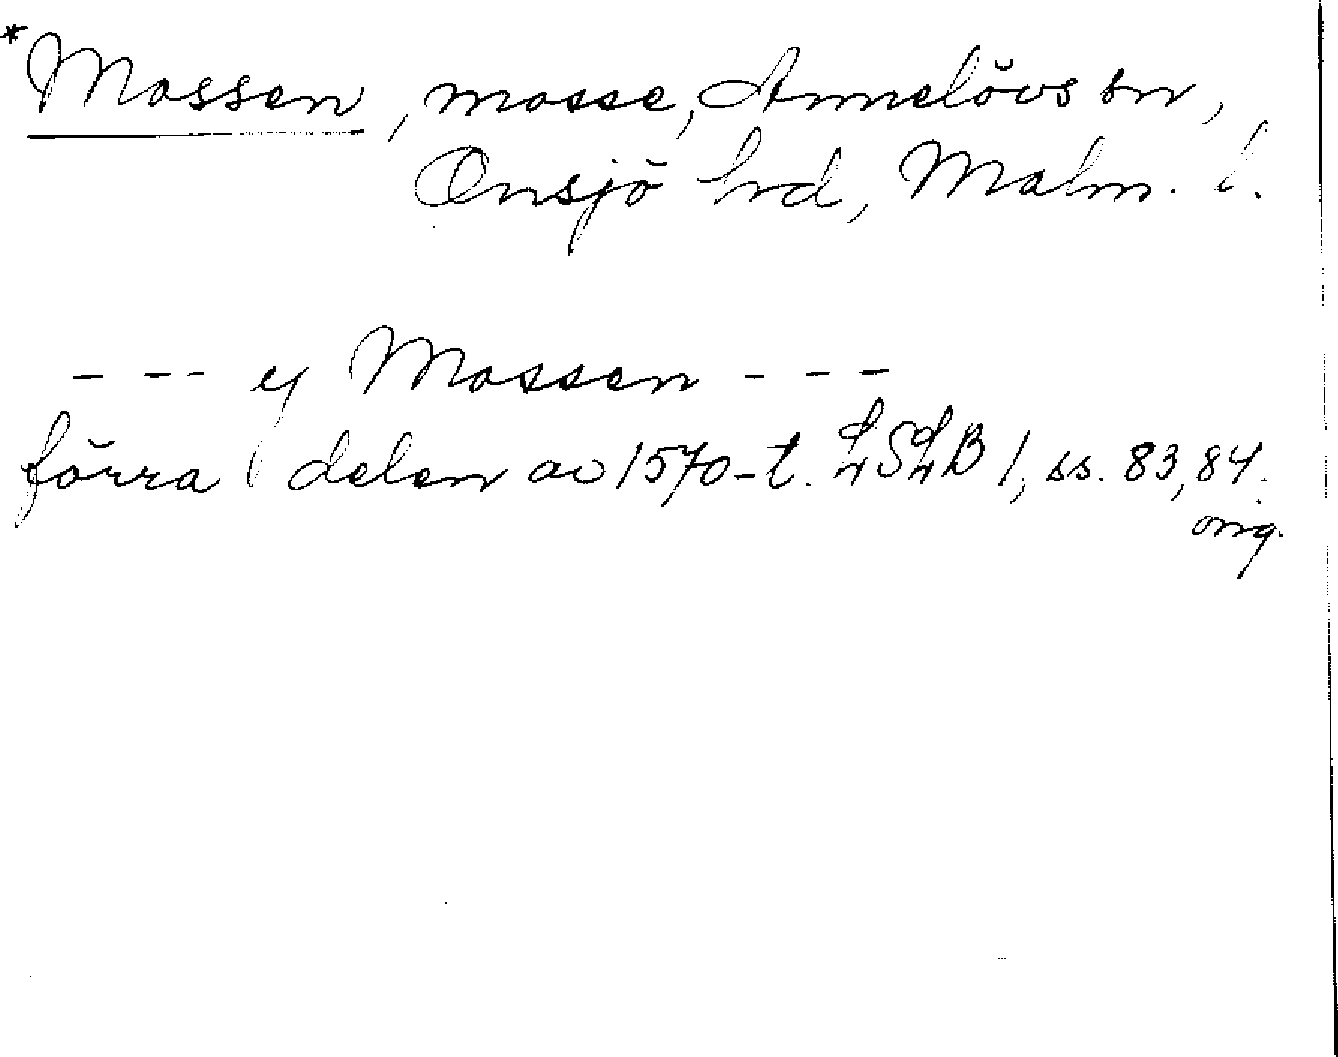 *Mossen, mosse, Annelövs sn,
Onsjö hrd, Malm. l.
- - - y Mossen - - -
förra delen av 1570-t. LSLB 1, ss. 83, 84.
orig.